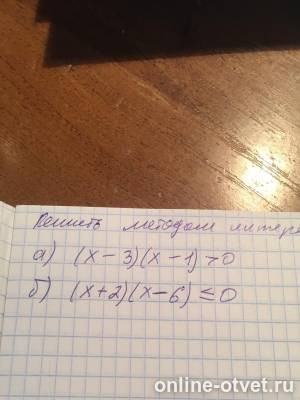 Решить методом интерв
а) (x-3)(x-1)>0
б) (x+2)(x-6)≤0
online-otvet.ru